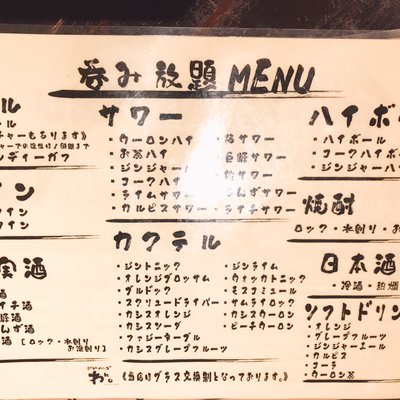 呑み放題 MENU
ル
ール
チャーもあります》
ンディーガフ
イン
ワイン
ワイン
実酒
酒
イチ酒
酒
んず酒
酒 [ロック・水割り
お湯割り]
サワー
・ウーロンハイ
・お茶ハイ
・ジンジャー
・コークハイ
・ライムサワー
・カルピスサワー
・梅サワー
・巨峰サワー
サワー
・あんずサワー
・ライチサワー
カクテル
・ジントニック
・オレンジブロッサム
・ブルドック
・スクリュードライバー
・カシスオレンジ
・カシスソーダ
・ファジーネーブル
・カシスグレープフルーツ
・ジンライム
・ウォッカトニック
・モスコミュール
・サムライロック
・カシスウーロン
・ピーチウーロン
ハイボ
・ハイボール
・コークハイボ
・ジンジャーハイ
焼酎
ロック・水割り・お
日本酒
・冷酒・熱燗
ソフトドリン
・オレンジ
・グレープフルーツ
・ジンジャーエール
・カルピス
・コーラ
・ウーロン茶
《当店はグラス交換制となっております。》